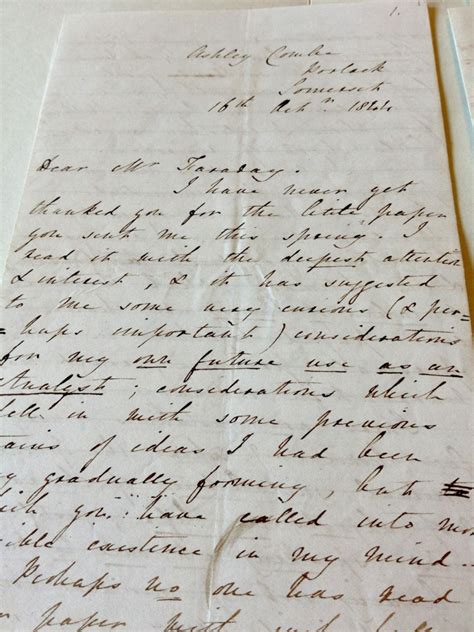 1.
Ashley Combe
Porlock
Somerset
16th Octr. 1844
Dear Mr Faraday.
I have never yet
thanked you for the little paper
you sent me this spring. I
read it with the deepest attention
& interest, & it has suggested
to me some very curious (& per=
=haps important) considerations
for my own future use as an
Analyst; considerations which
fell in with some previous
trains of ideas I had been
gradually forming, but
which you have called into more
existence in my mind.
Perhaps no one has read
paper with